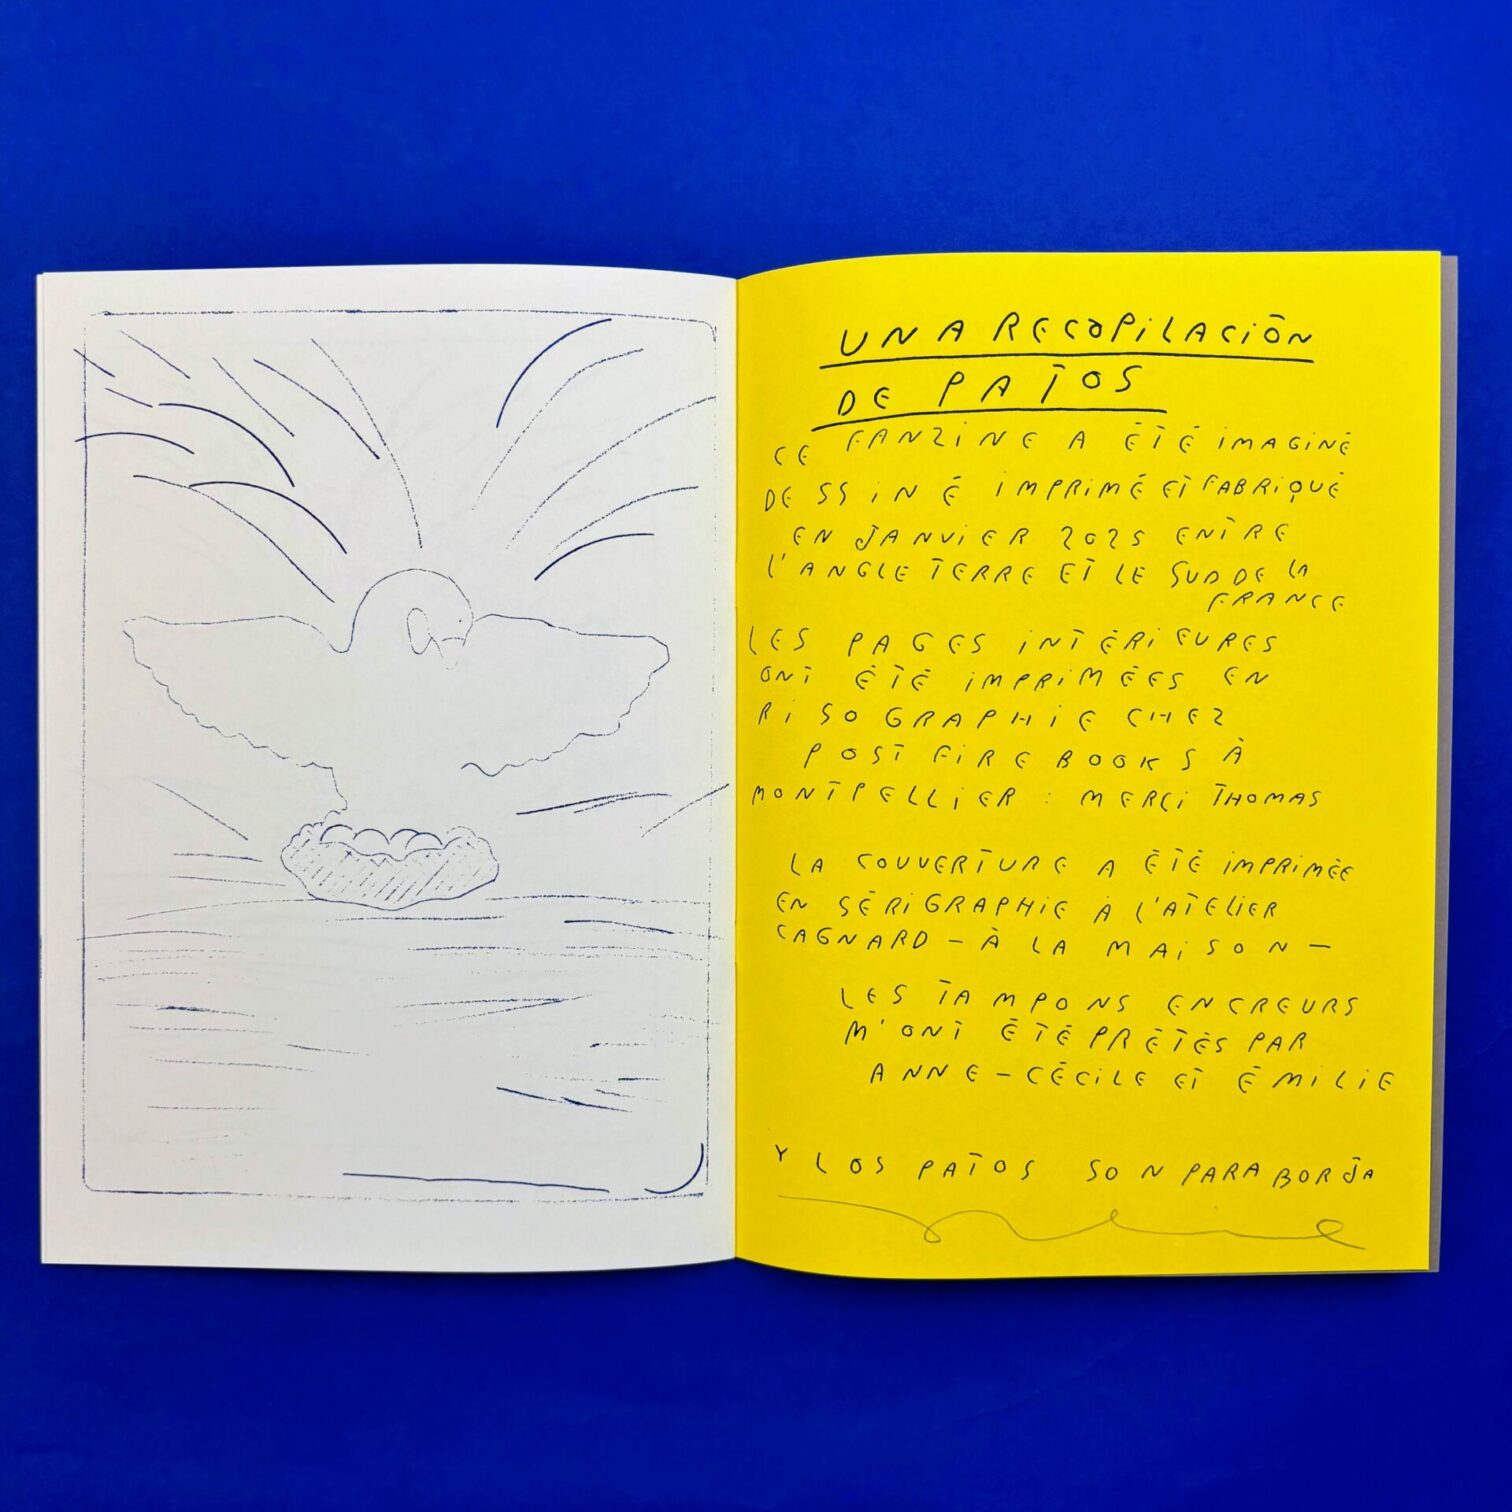 UNA RECOPILACIÓN
DE PATOS
CE FANZINE A ÉTÉ IMAGINÉ
DESSINÉ IMPRIMÉ ET FABRIQUÉ
EN JANVIER 2025 ENTRE
L'ANGLETERRE ET LE SUD DE LA
FRANCE
LES PAGES INTÉRIEURES
ONT ÉTÉ IMPRIMÉES EN
RISOGRAPHIE CHEZ
POST FIRE BOOKS À
MONTPELLIER : MERCI THOMAS
LA COUVERTURE A ÉTÉ IMPRIMÉE
EN SÉRIGRAPHIE À L'ATELIER
CAGNARD - À LA MAISON -
LES TAMPONS ENCREURS
M'ONT ÉTÉ PRÊTÉS PAR
ANNE-CÉCILE ET ÉMILIE
Y LOS PATOS SON PARA BORJA